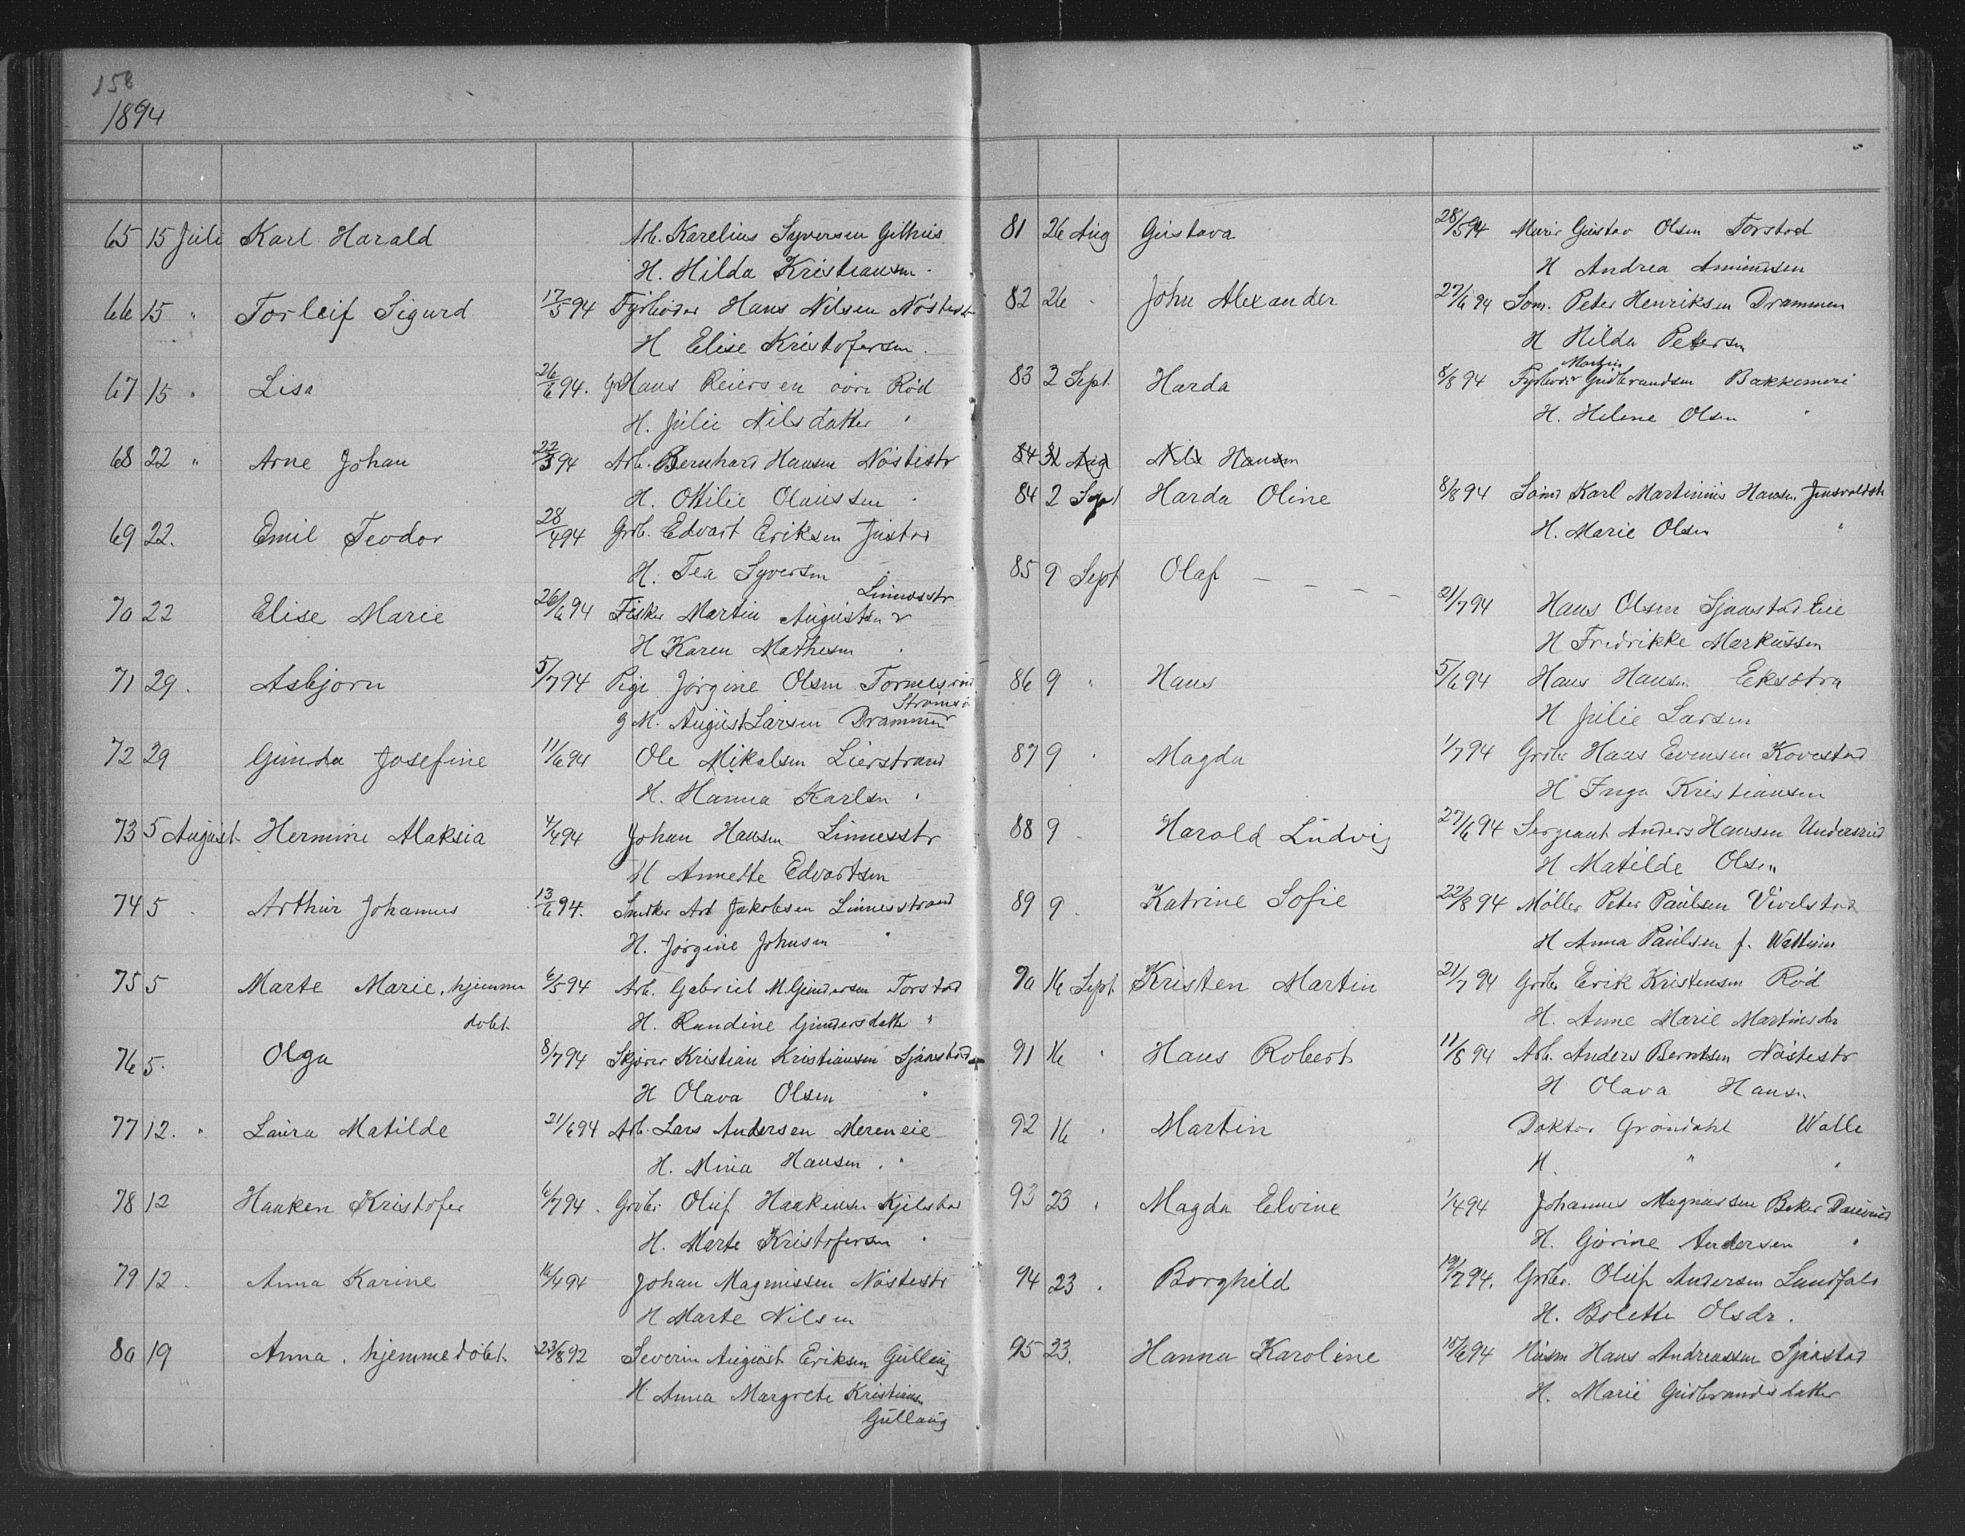 158
1894
65 15 Juli Karl Harald Arb. Karelius Syversen Gilhus
H. Hilda Kristiansen
66 15 " Torleif Sigurd 17/5 94 Fyrböder Hans Nilsen Nöstestr
H Elise Kristofersen
67 15 " Lisa 26/6 94. Hans Reiersen övre Röd
H. Julie Nilsdatter "
68 22 " Arne Johan 22/3 94 Arb. Bernhard Hansen Nöstestr
H. Ottilie Olaussen "
69 22. Emil Teodor 28/4 94 Grb. Edvart Eriksen Justad
H. Tea Syversen
Linnesstr
70 22 Elise Marie 26/6 94 Fisker Martin Augustsen
H Karen Mathesen "
71 29. Asbjörn 5/7 94 Pige Jörgine Olsen
Strömsö
g M. August Larsen Drammen
72 29 Gunda Josefine 11/6 94 Ole Mikalsen Lierstrand
H. Hanna Karlsen "
73 5 August Hermine Alaksia 4/4 94 Johan Hansen Linnesstr
H Annette Edvartsen
74 5 . Arthur Johannes 13/6 94. Snedker Jakobsen Linnesstrand
H. Jörgine Johnsen "
75 5 Marte Marie, hjemme 6/5 94 Arb. Gabriel M. Gundersen Torstad
döbt H. Randine Gundersdatter "
76 5. Olga 8/7 94 Skjörer Kristian Kristiansen Sjaastad
H Olava Olsen "
77 12. " Laura Matilde 21/6 94 Arb. Lars Andersen Mereneie
H. Mina Hansen "
78 12 Haaken Kristofer 6/7 94 . Grbr. Oluf Haakensen Kjelstad
H. Marte Kristofersen "
79 12 . Anna Karine 16/4 94 Johan Magnussen Nöstestr
H Marte Nilsen
80 19 Anna, hjemmedöbt 23/8 92 Severin August Eriksen Gullaug
H. Anna Margrete Kristiansen
Gullaug
81 26 Aug Gustava 28/5 94 Murer Gustav Olsen Torstad
H Andrea Amundsen
82 26 " John Alexander 27/6 94 Söm. Peter Henriksen Drammen
H Hilda Petersen
Martin
83 2 Sept. Harda 8/8 94 Fyrböder Gudbrandsen
H. Helene Olsen "
84 31 Aug Nils Hansen
84 2 Sept Harda Oline 8/8 94 Sömd Karl Martinius Hansen
H. Marie Olsen "
85 9 Sept Olaf — — — —
21/7 94 Hans Olsen Sjaastad Eie
H Fredrikke Markussen
86 9 " Hans 5/6 94 Hans Hansen Eksætra
H Julie Larsen
87 9 " Magda 1/7 94 Grbr Hans Evensen Kovestad
H Inga Kristiansen
88 9 Harald Ludvig 27/6 94 Sergeant Anders Hansen Undersrud
H Matilde Olsen
89 9 . Katrine Sofie 22/8 94 Möller Peter Paulsen Vivelstad
H Anna Paulsen f.
90 16 Sept. Kristen Martin 21/7 94 Grbr Erik Kristensen Röd
H. Anne Marie Martinsdr
91 16 " Hans Robert 11/8 94 Arb. Anders Berntsen Nöstestr
H Olava Hansn
92 16 " Martin Doktor Gröndahl Walle
H. " "
93 23 " Magda Elvine 1/4 94 Johannes Magnussen Beker
H. Gjörine Andersen "
94 23 . Borghild 19/7 94. Grbr. Oluf Andersen Landfald
H. Bolette Olsdr.
95 23. Hanna Karoline 15/6 94 Husm Hans Andreassen Sjaastad
H. Marie Gudbrandsdatter